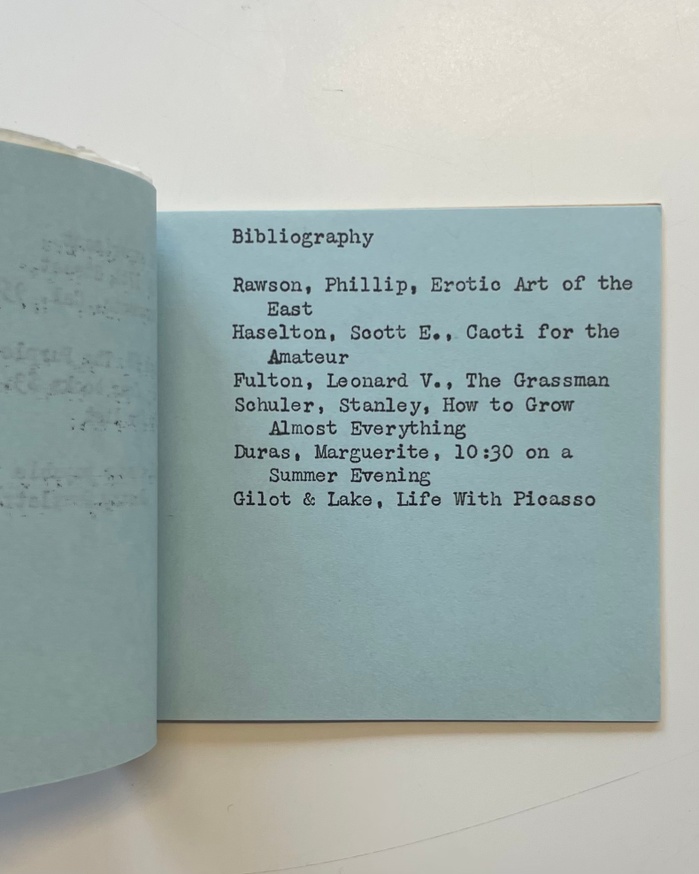 Bibliography
Rawson, Phillip, Erotic Art of the
East
Haselton, Scott E., Cacti for the
Amateur
Fulton, Leonard V., The Grassman
Schuler, Stanley, How to Grow
Almost Everything
Duras, Marguerite, 10:30 on a
Summer Evening
Gilot & Lake, Life With Picasso